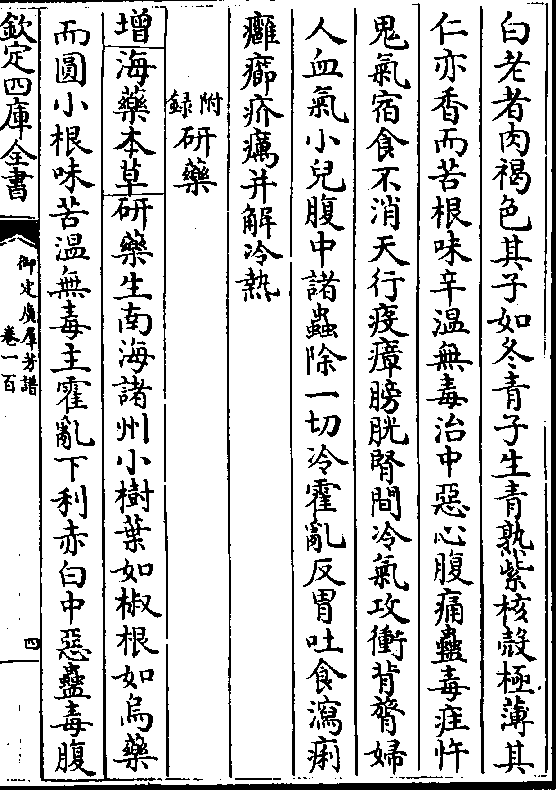 白老者肉褐色其子如冬青子生青熟紫核殻極薄其
仁亦香而苦根味辛温無毒治中惡心腹痛蠱毒疰忤
鬼氣宿食不消天行疫瘴膀胱腎間冷氣攻衝背膂婦
人血氣小兒腹中諸蟲除一切冷霍亂反胃吐食瀉痢
癰癤疥癘并解冷熱
附録研藥
增海藥本草研藥生南海諸州小樹葉如椒根如烏藥
而圓小根味苦温無毒主霍亂下利赤白中惡蠱毒腹
欽定四庫全書
御定廣羣芳譜
卷一百
四